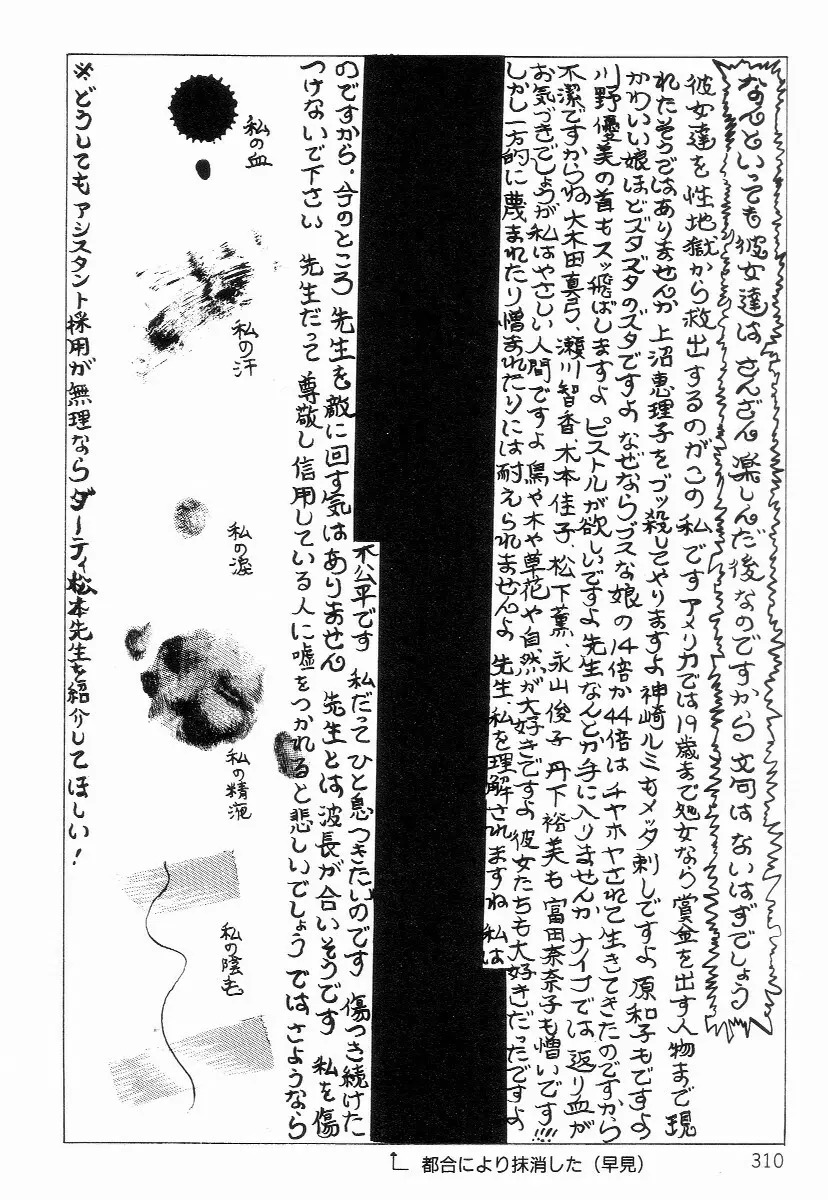 なんといっても彼女達は さんざん 楽しんだ後なのですから 文句はないはずでしょう
彼女達を性地獄から救出するのがこの私です アメリカでは19歳まで処女なら賞金を出す人物まで現
れたそうではありませんか 上沼恵理子をブッ殺してやりますよ 神崎ルミもメッタ刺しですよ 原和子もですよ
かわいい娘ほどズタズタのズタですよ なぜならブスな娘の14倍か44倍は チヤホヤされて生きてきたのですから
川野優美の首もスッ飛ばしますよ ピストルが欲しいですよ 先生なんとか手に入りませんか ナイフでは返り血が
不潔ですからね 大木田真弓、瀬川智香、木本佳子、松下薫、永山俊子 丹下裕美も 富田奈奈子も憎いです!!!
お気づきでしょうが 私はやさしい人間ですよ 鳥や木や草花や自然が大好きですよ 彼女たちも大好きだったですよ
しかし一方的に蔑まれたり憎まれたりには耐えられませんよ 先生、私を理解されますね 私は
不公平です 私だって ひと息つきたいのです 傷つき続けた
のですから。今のところ 先生を敵に回す気はありません 先生とは波長が合いそうです 私を傷
つけないで下さい 先生だって 尊敬し信用している人に嘘をつかれると悲しいでしょう ではさようなら
私の血
私の汗
私の涙
私の精液
私の陰毛
※どうしてもアシスタント採用が無理なら ダーティ松本先生を紹介してほしい!
都合により抹消した(早見)
310